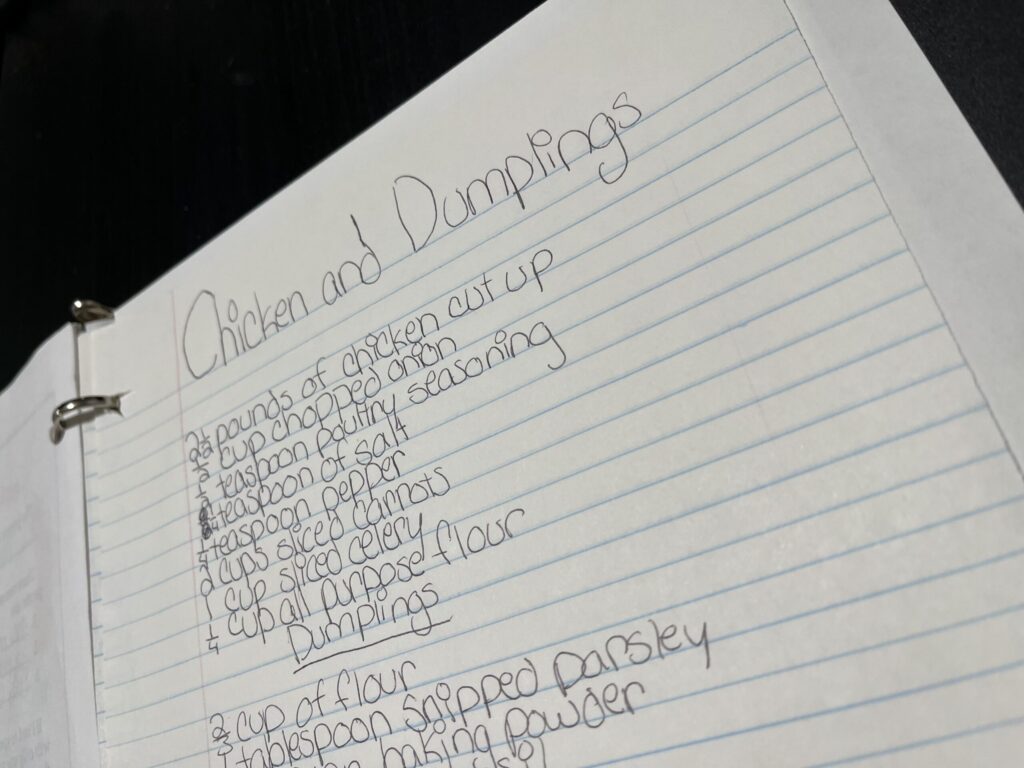 Chicken and Dumplings
2½ pounds of chicken cut up
½ cup chopped onion
½ teaspoon poultry seasoning
teaspoon of salt
¼ teaspoon pepper
2 cups sliced carrots
1 cup sliced celery
¼ cup all purpose flour
Dumplings
⅔ cup of flour
1 tablespoon snipped parsley
baking powder